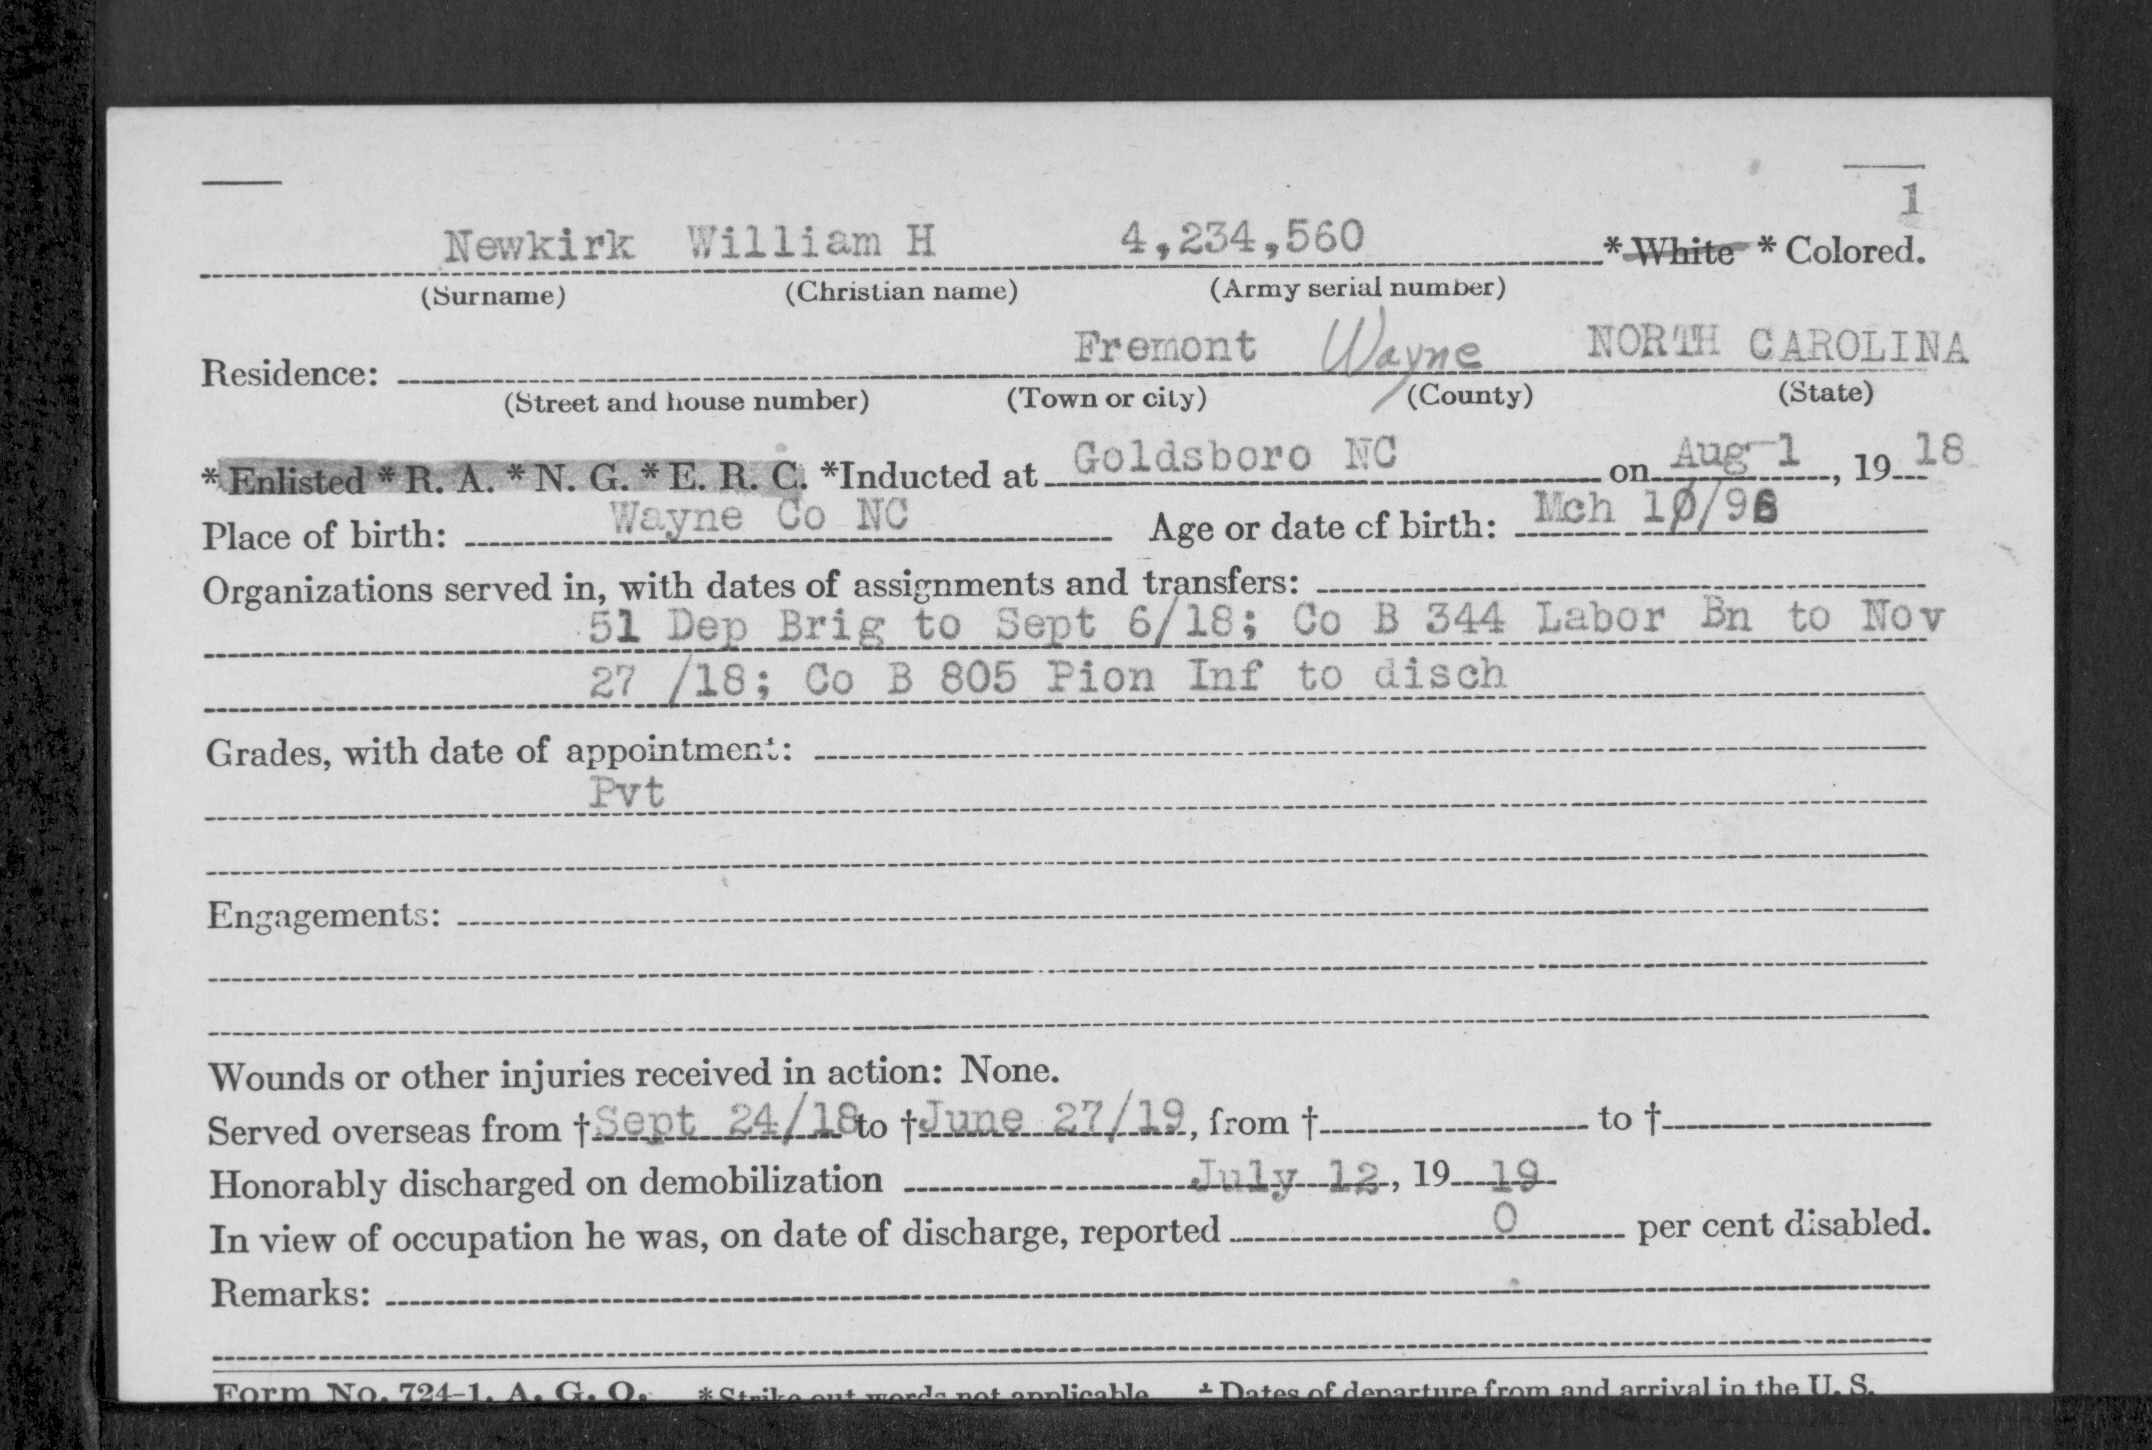 1
Newkirk William H 4,234,560 * White * Colored.
(Surname) (Christian name) (Army serial number)
Residence: Fremont Wayne NORTH CAROLINA
(Street and house number) (Town or city) (County) (State)
* Enlisted * R. A. * N. G. * E. R. C. *Inducted at Goldsboro NC on Aug 1, 19 18
Place of birth: Wayne Co NC Age or date of birth: Mch 10/96
Organizations served in, with dates of assignments and transfers:
51 Dep Brig to Sept 6/18; Co B 344 Labor Bn to Nov
27 /18; Co B 805 Pion Inf to disch
Grades, with date of appointment:
Pvt
Engagements:
Wounds or other injuries received in action: None.
Served overseas from †Sept 24/18 to †June 27/19, from † to †
Honorably discharged on demobilization July 12, 19 19
In view of occupation he was, on date of discharge, reported 0 per cent disabled.
Remarks:
Form No. 724-1, A. G. O. *Strike out words not applicable † Dates of departure from and arrival in the U. S.